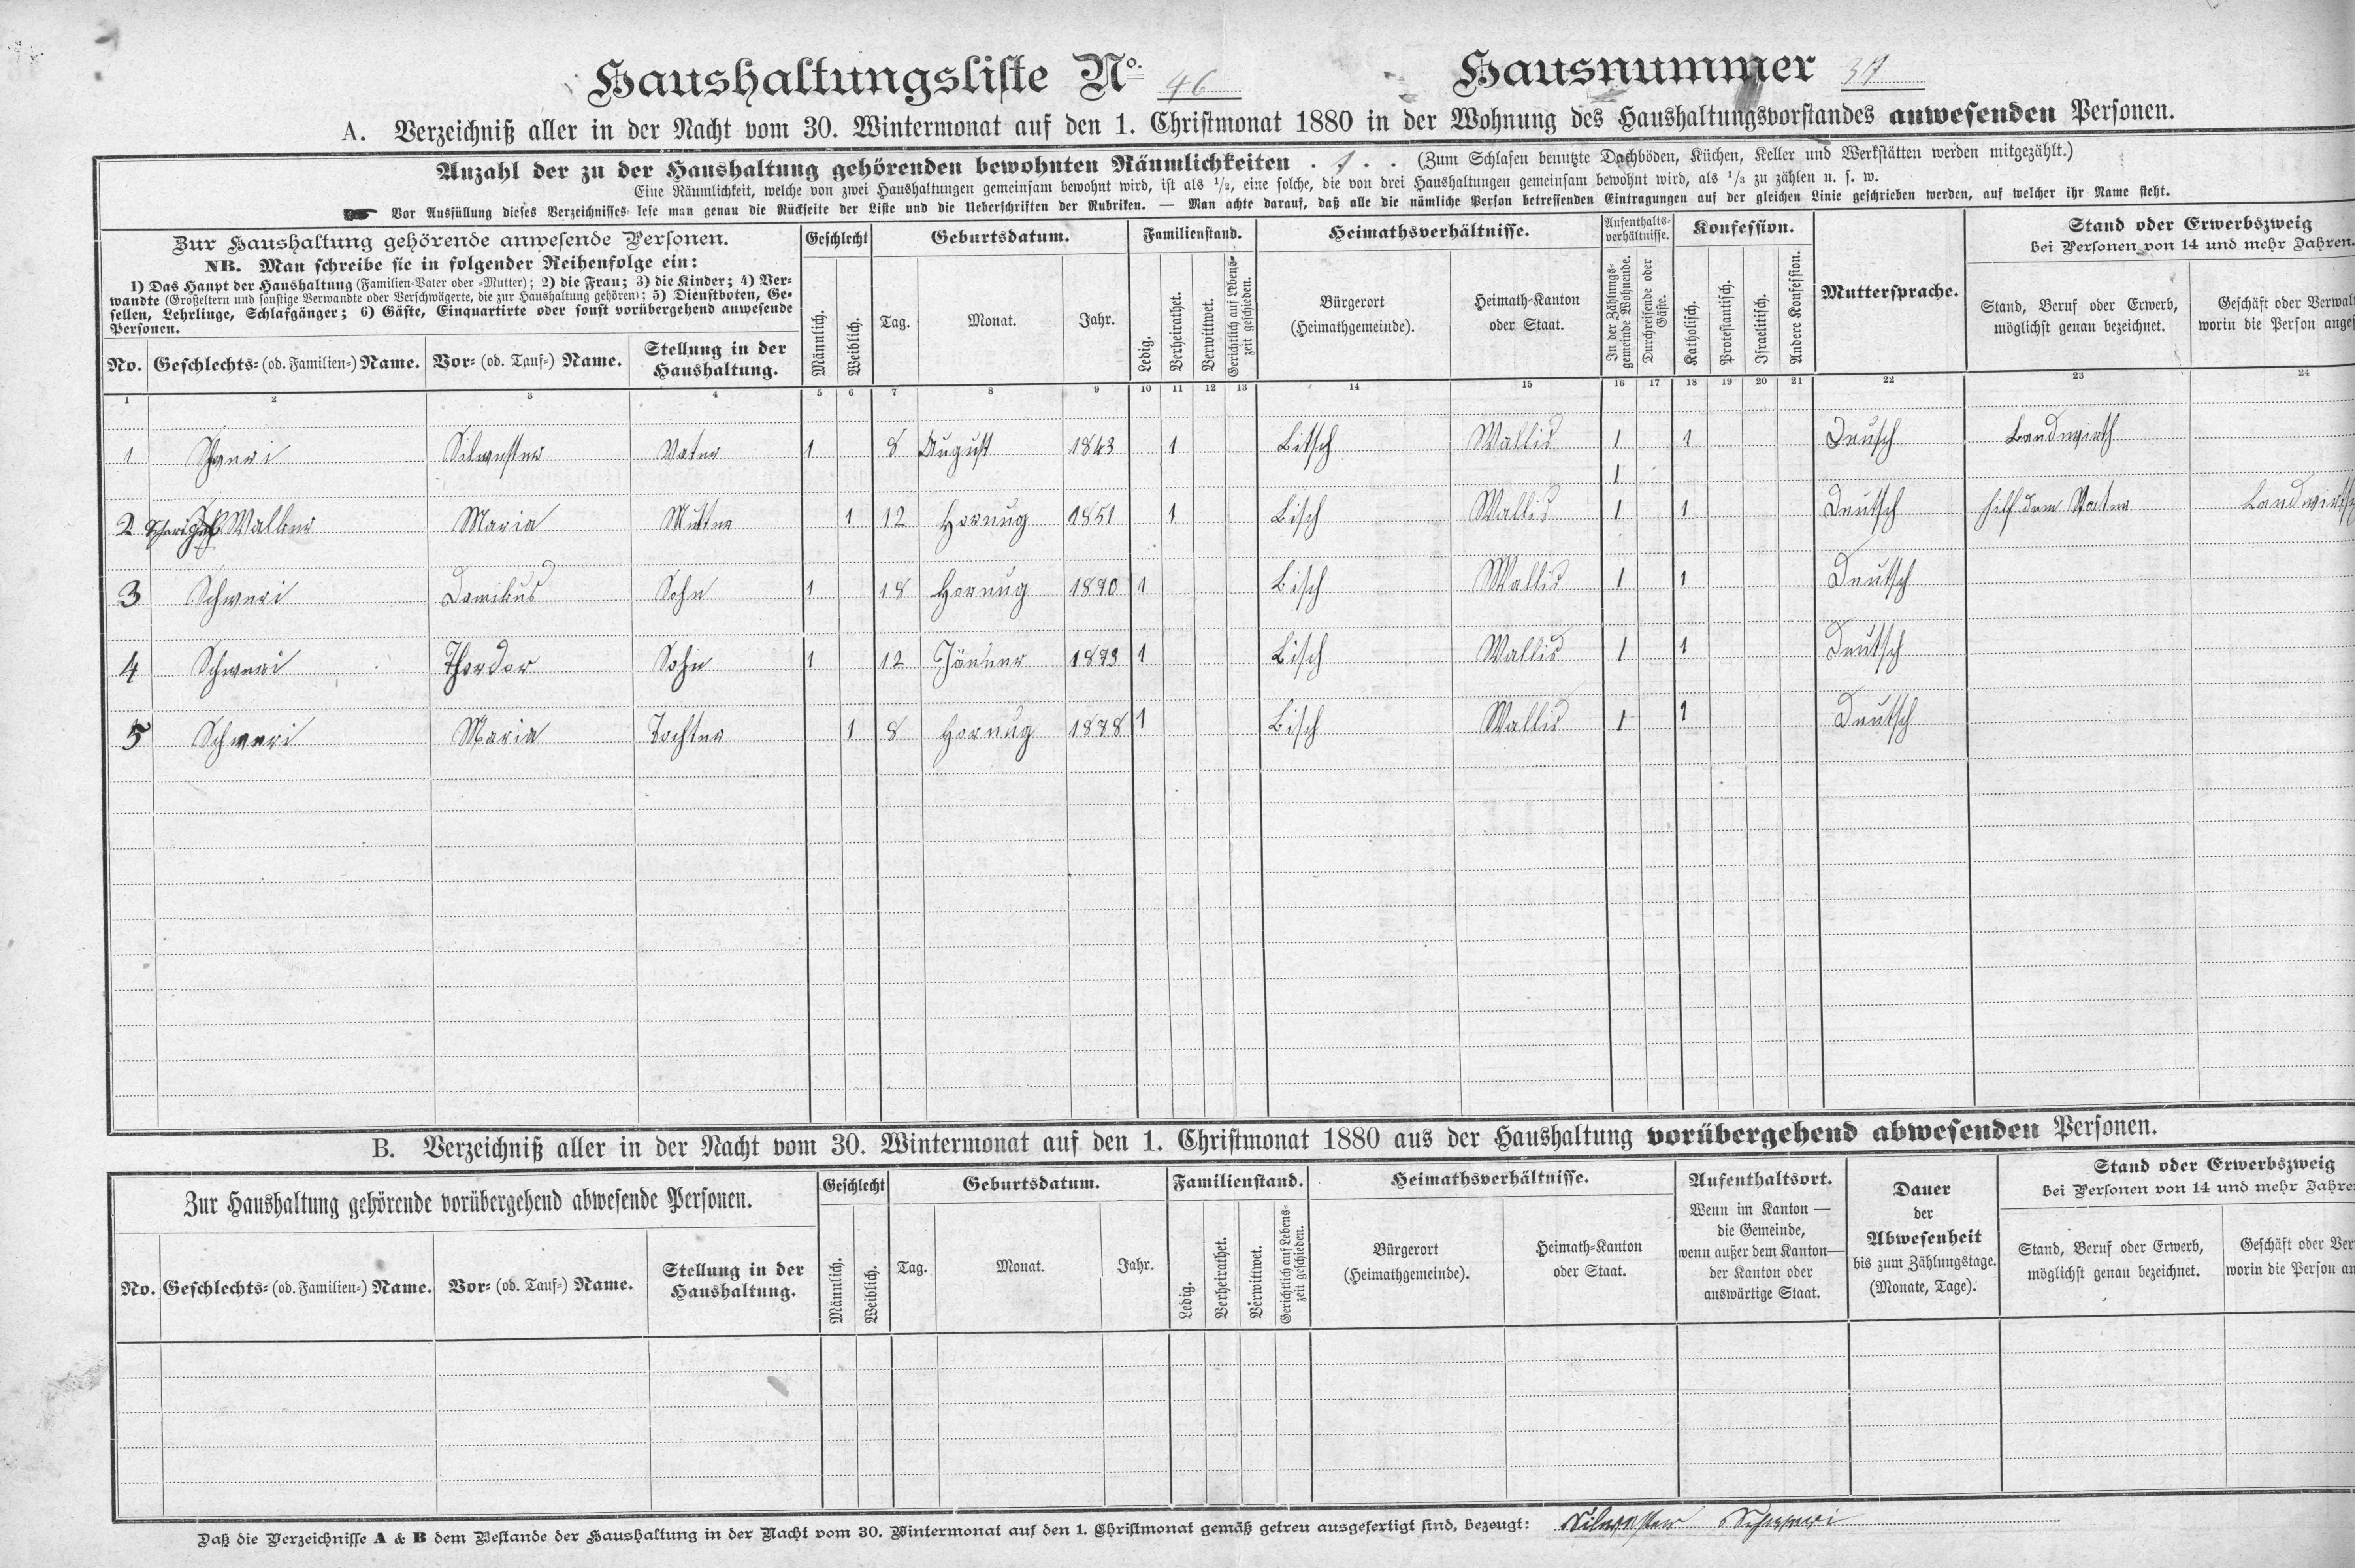 Haushaltungsliste No. 46 Hausnummer 37
A. Verzeichniß aller in der Nacht vom 30. Wintermonat auf den 1. Christmonat 1880 in der Wohnung des Haushaltungsvorstandes anwesenden Personen.
Anzahl der zu der Haushaltung gehörenden bewohnten Räumlichkeiten . 1 . . (Zum Schlafen benutzte Dachböden, Küchen, Keller und Werkstätten werden mitgezählt.)
Eine Räumlichkeit, welche von zwei Haushaltungen gemeinsam bewohnt wird, ist als 1/2, eine solche, die von drei Haushaltungen gemeinsam bewohnt wird, als 1/3 zu zählen u. s. w.
☛ Vor Ausfüllung dieses Verzeichnisses lese man genau die Rückseite der Liste und die Ueberschriften der Rubriken. — Man achte darauf, daß alle die nämliche Person betreffenden Eintragungen auf der gleichen Linie geschrieben werden, auf welcher ihr Name steht.
Zur Haushaltung gehörende anwesende Personen.
NB. Man schreibe sie in folgender Reihenfolge ein:
1) Das Haupt der Haushaltung (Familien-Vater oder -Mutter); 2) die Frau; 3) die Kinder; 4) Ver-
wandte (Großeltern und sonstige Verwandte oder Verschwägerte, die zur Haushaltung gehören); 5) Dienstboten, Ge-
sellen, Lehrlinge, Schlafgänger; 6) Gäste, Einquartirte oder sonst vorübergehend anwesende
Personen.
No. Geschlechts- (od. Familien-) Name. Vor- (od. Tauf-) Name. Stellung in der
Haushaltung.
Geschlecht
Männlich. Weiblich.
Geburtsdatum.
Tag. Monat. Jahr.
Familienstand.
Ledig. Verheirathet. Verwittwet. Gerichtlich auf Lebens-
zeit geschieden.
Heimathsverhältnisse.
Bürgerort
(Heimathgemeinde).
Heimath-Kanton
oder Staat.
Aufenthalts-
verhältnisse.
In der Zählungs-
gemeinde Wohnende.
Durchreisende oder
Gäste.
Konfession.
Katholisch. Protestantisch. Israelitisch. Andere Konfession.
Muttersprache.
Stand oder Erwerbszweig
bei Personen von 14 und mehr Jahren.
Stand, Beruf oder Erwerb,
möglichst genau bezeichnet.
Geschäft oder Verwal
worin die Person anges
1 2 3 4 5 6 7 8 9 10 11 12 13 14 15 16 17 18 19 20 21 22 23 24
1 Schweri Silwester Vater 1 8 August 1843 1 Bitsch Wallis 1 1 Deusch Landwirth
1
2 Walker Maria Mutter 1 12 Hornug 1851 1 Bisch Wallis 1 1 Deutsch hilf dem Vater Landwirtsch
3 Schweri Domikus Sohn 1 18 Hornug 1870 1 Bisch Wallis 1 1 Deutsch
4 Schweri Thordor Sohn 1 12 Jänner 1873 1 Bisch Wallis 1 1 Deutsch
5 Schweri Maria Tochter 1 8 Hornug 1878 1 Bisch Wallis 1 1 Deutsch
B. Verzeichniß aller in der Nacht vom 30. Wintermonat auf den 1. Christmonat 1880 aus der Haushaltung vorübergehend abwesenden Personen.
Zur Haushaltung gehörende vorübergehend abwesende Personen.
No. Geschlechts- (od. Familien-) Name. Vor- (od. Tauf-) Name. Stellung in der
Haushaltung.
Geschlecht
Männlich. Weiblich.
Geburtsdatum.
Tag. Monat. Jahr.
Familienstand.
Ledig. Verheirathet. Verwittwet. Gerichtlich auf Lebens-
zeit geschieden.
Heimathsverhältnisse.
Bürgerort
(Heimathgemeinde).
Heimath-Kanton
oder Staat.
Aufenthaltsort.
Wenn im Kanton —
die Gemeinde,
wenn außer dem Kanton—
der Kanton oder
auswärtige Staat.
Dauer
der
Abwesenheit
bis zum Zählungstage.
(Monate, Tage).
Stand oder Erwerbszweig
bei Personen von 14 und mehr Jahre
Stand, Beruf oder Erwerb,
möglichst genau bezeichnet.
Geschäft oder Ver
worin die Person an
Daß die Verzeichnisse A & B dem Bestande der Haushaltung in der Nacht vom 30. Wintermonat auf den 1. Christmonat gemäß getreu ausgefertigt sind, bezeugt: Silwester Schweri